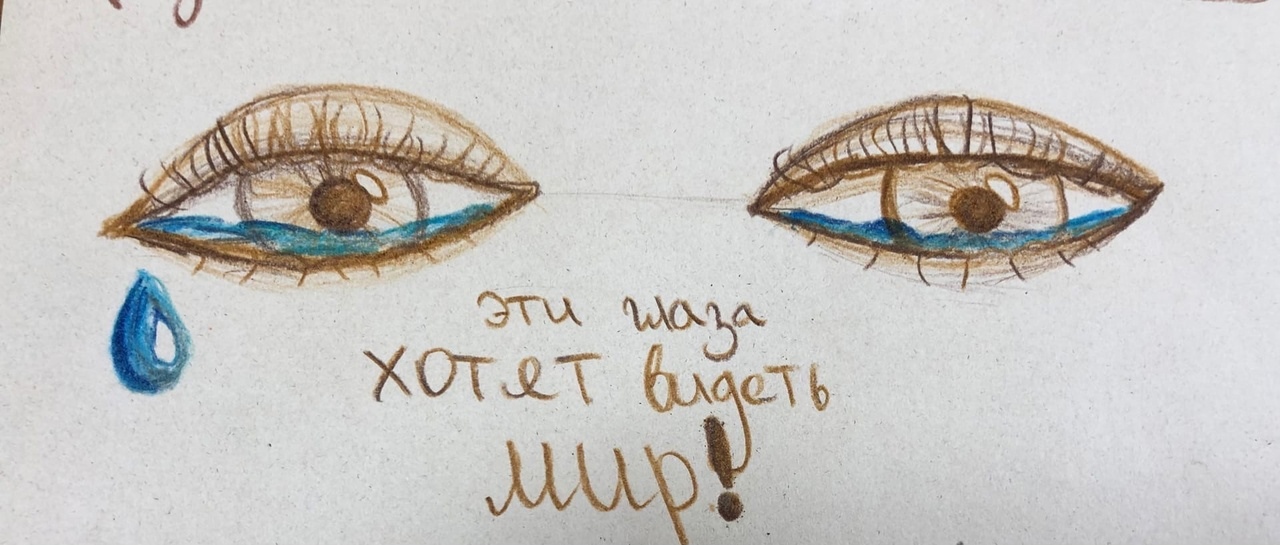 эти глаза
хотят видеть
мир!